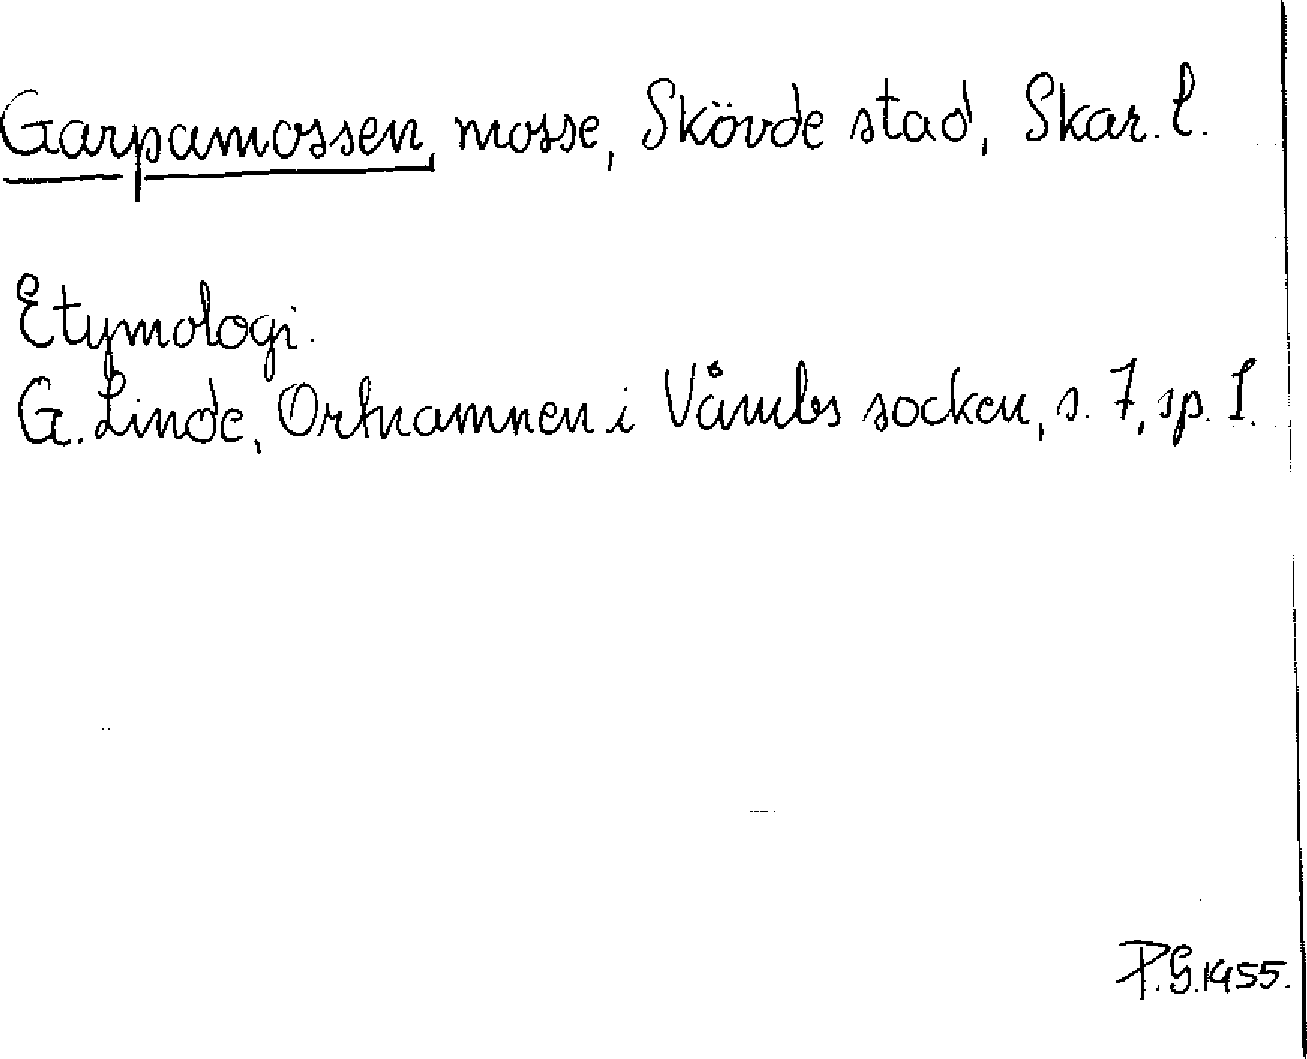 Garpamossen, mosse, Skövde stad, Skar. l.
Etymologi.
G. Linde, Ortnamnen i Våmbs socken, s. 7, sp. I.
P.G. 1955.